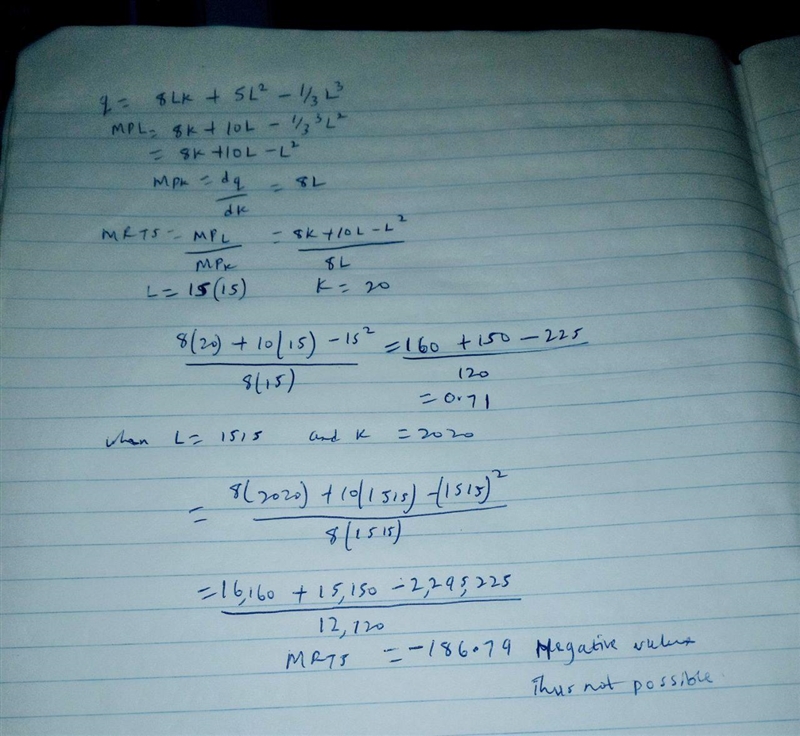 q = 8LK + 5L² - 1/3 L³
MPL = 8K + 10L - 1/3 ³L²
= 8K + 10L - L²
MPK = dq/dK = 8L
MRTS = MPL/MPK = 8K + 10L - L²/8L
L = 15(15) K = 20
8(20) + 10(15) - 15²/8(15) = 160 + 150 - 225/120
= 0.71
when L = 1515 and K = 2020
= 8(2020) + 10(1515) - (1515)²/8(1515)
= 16,160 + 15,150 - 2,295,225/12,120
MRTS = -186.79 Negative value
Thus not possible.